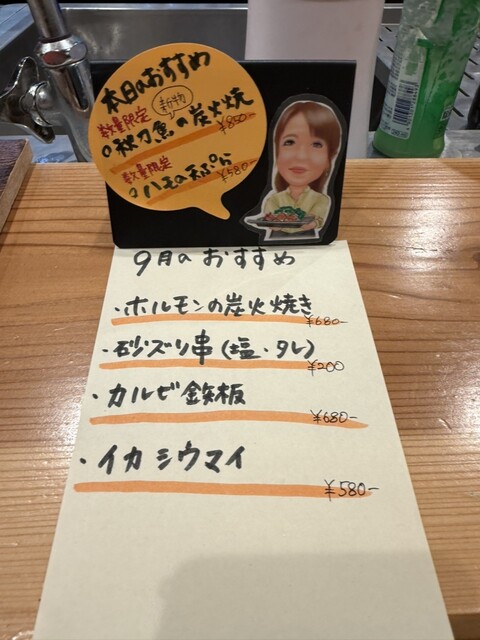 本日のおすすめ
数量限定
新物
○秋刀魚の炭火焼
¥850-
数量限定
○ハモの天ぷら
¥580-
9月のおすすめ
・ホルモンの炭火焼き
¥680-
・砂ズリ串(塩・タレ)
¥200
・カルビ鉄板
¥680-
・イカシウマイ
¥580-